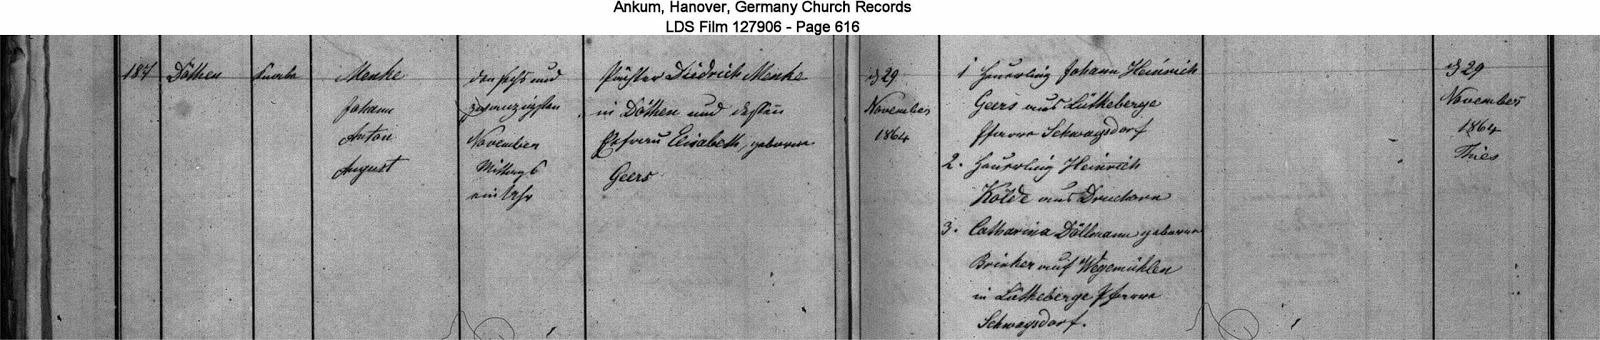 Ankum, Hanover, Germany Church Records
LDS Film 127906 - Page 616
187 Döthen Knabe Menke
Johann
Anton
August
den sechs und
zwanzigsten
November
Mittags
ein Uhr
Pächter Diedrich Menke
in Döthen und dessen
Ehefrau Elisabeth, geborene
Geers
29
November
1864
1 Heuerling Johann Heinrich
Geers aus Lütkeberge
Pfarre Schwagsdorf
2. Heuerling Heinrich
Kolde aus Druchorn
3. Catharina Döllmann geborene
Brinker auf Wegemühlen
in Lütkeberge Pfarre
Schwagsdorf.
29
November
1864
Thies